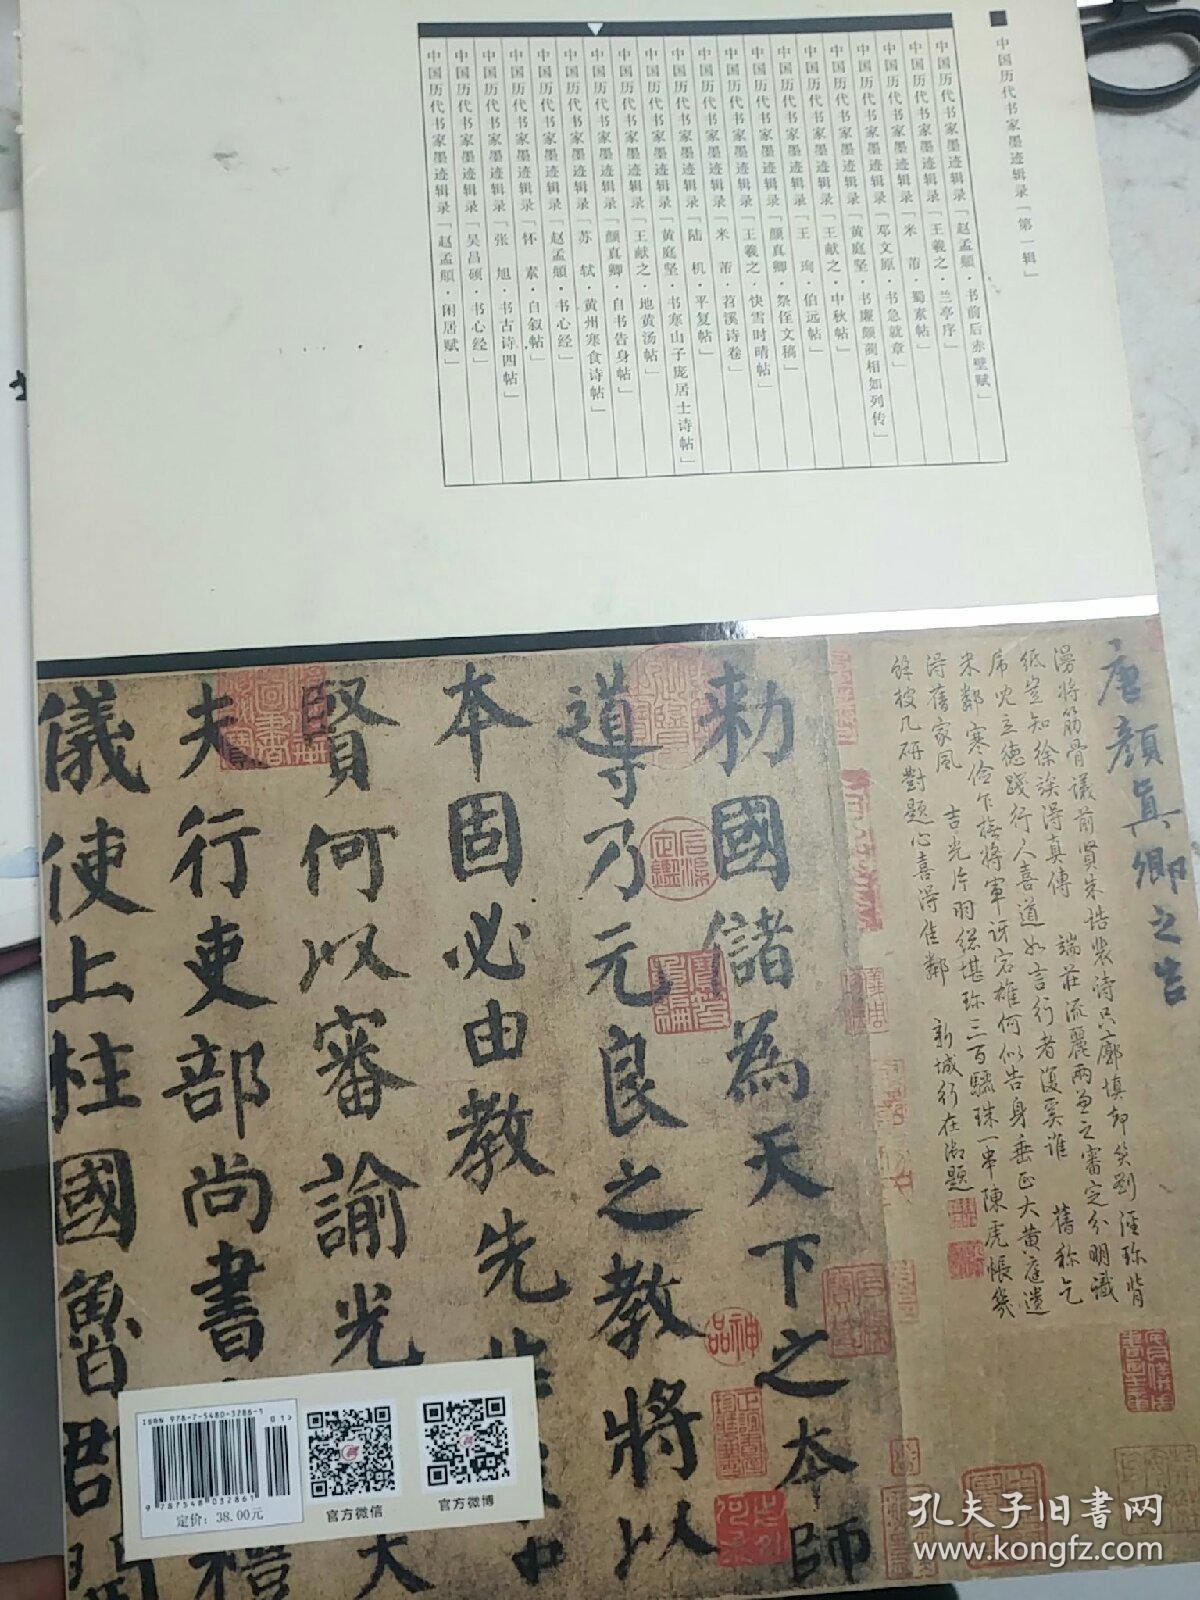 中国历代书家墨迹辑录「第一辑」
中国历代书家墨迹辑录「赵孟頫·书前后赤壁赋」
中国历代书家墨迹辑录「王羲之·兰亭序」
中国历代书家墨迹辑录「米 芾·蜀素帖」
中国历代书家墨迹辑录「邓文原·书急就章」
中国历代书家墨迹辑录「黄庭坚·书廉颇蔺相如列传」
中国历代书家墨迹辑录「王献之·中秋帖」
中国历代书家墨迹辑录「王 珣·伯远帖」
中国历代书家墨迹辑录「颜真卿·祭侄文稿」
中国历代书家墨迹辑录「王羲之·快雪时晴帖」
中国历代书家墨迹辑录「米 芾·苕溪诗卷」
中国历代书家墨迹辑录「陆 机·平复帖」
中国历代书家墨迹辑录「黄庭坚·书寒山子庞居士诗帖」
中国历代书家墨迹辑录「王献之·地黄汤帖」
中国历代书家墨迹辑录「颜真卿·自书告身帖」
中国历代书家墨迹辑录「苏 轼·黄州寒食诗帖」
中国历代书家墨迹辑录「赵孟頫·书心经」
中国历代书家墨迹辑录「怀 素·自叙帖」
中国历代书家墨迹辑录「张 旭·书古诗四帖」
中国历代书家墨迹辑录「吴昌硕·书心经」
中国历代书家墨迹辑录「赵孟頫·闲居赋」
唐颜真卿之告
漫将筋骨议前贤朱诰裴诗只廓填却笑刘泾珍背
纸岂知徐族得真传 端庄流丽两兼之审定分明识
席儿立德践行人喜道如言行者复奚谁 旧称乞
米邻寒俭乍拖将军讶宕雄何似告身垂正大黄庭遗
得旧家风 吉光片羽总堪珍三百骊珠一串陈虎帐几
余披几研对题心喜得佳邻 新城行在御题
神品
勑國儲為天下之本師
導乃元良之教將以
本固必由教先
賢何以審諭光 大
夫行吏部尚書 禮
儀使上柱國魯郡開
ISBN 978-7-5480-3286-1
01>
9 787548 032861
定价：38.00元
官方微信
官方微博
孔夫子旧书网
www.kongfz.com